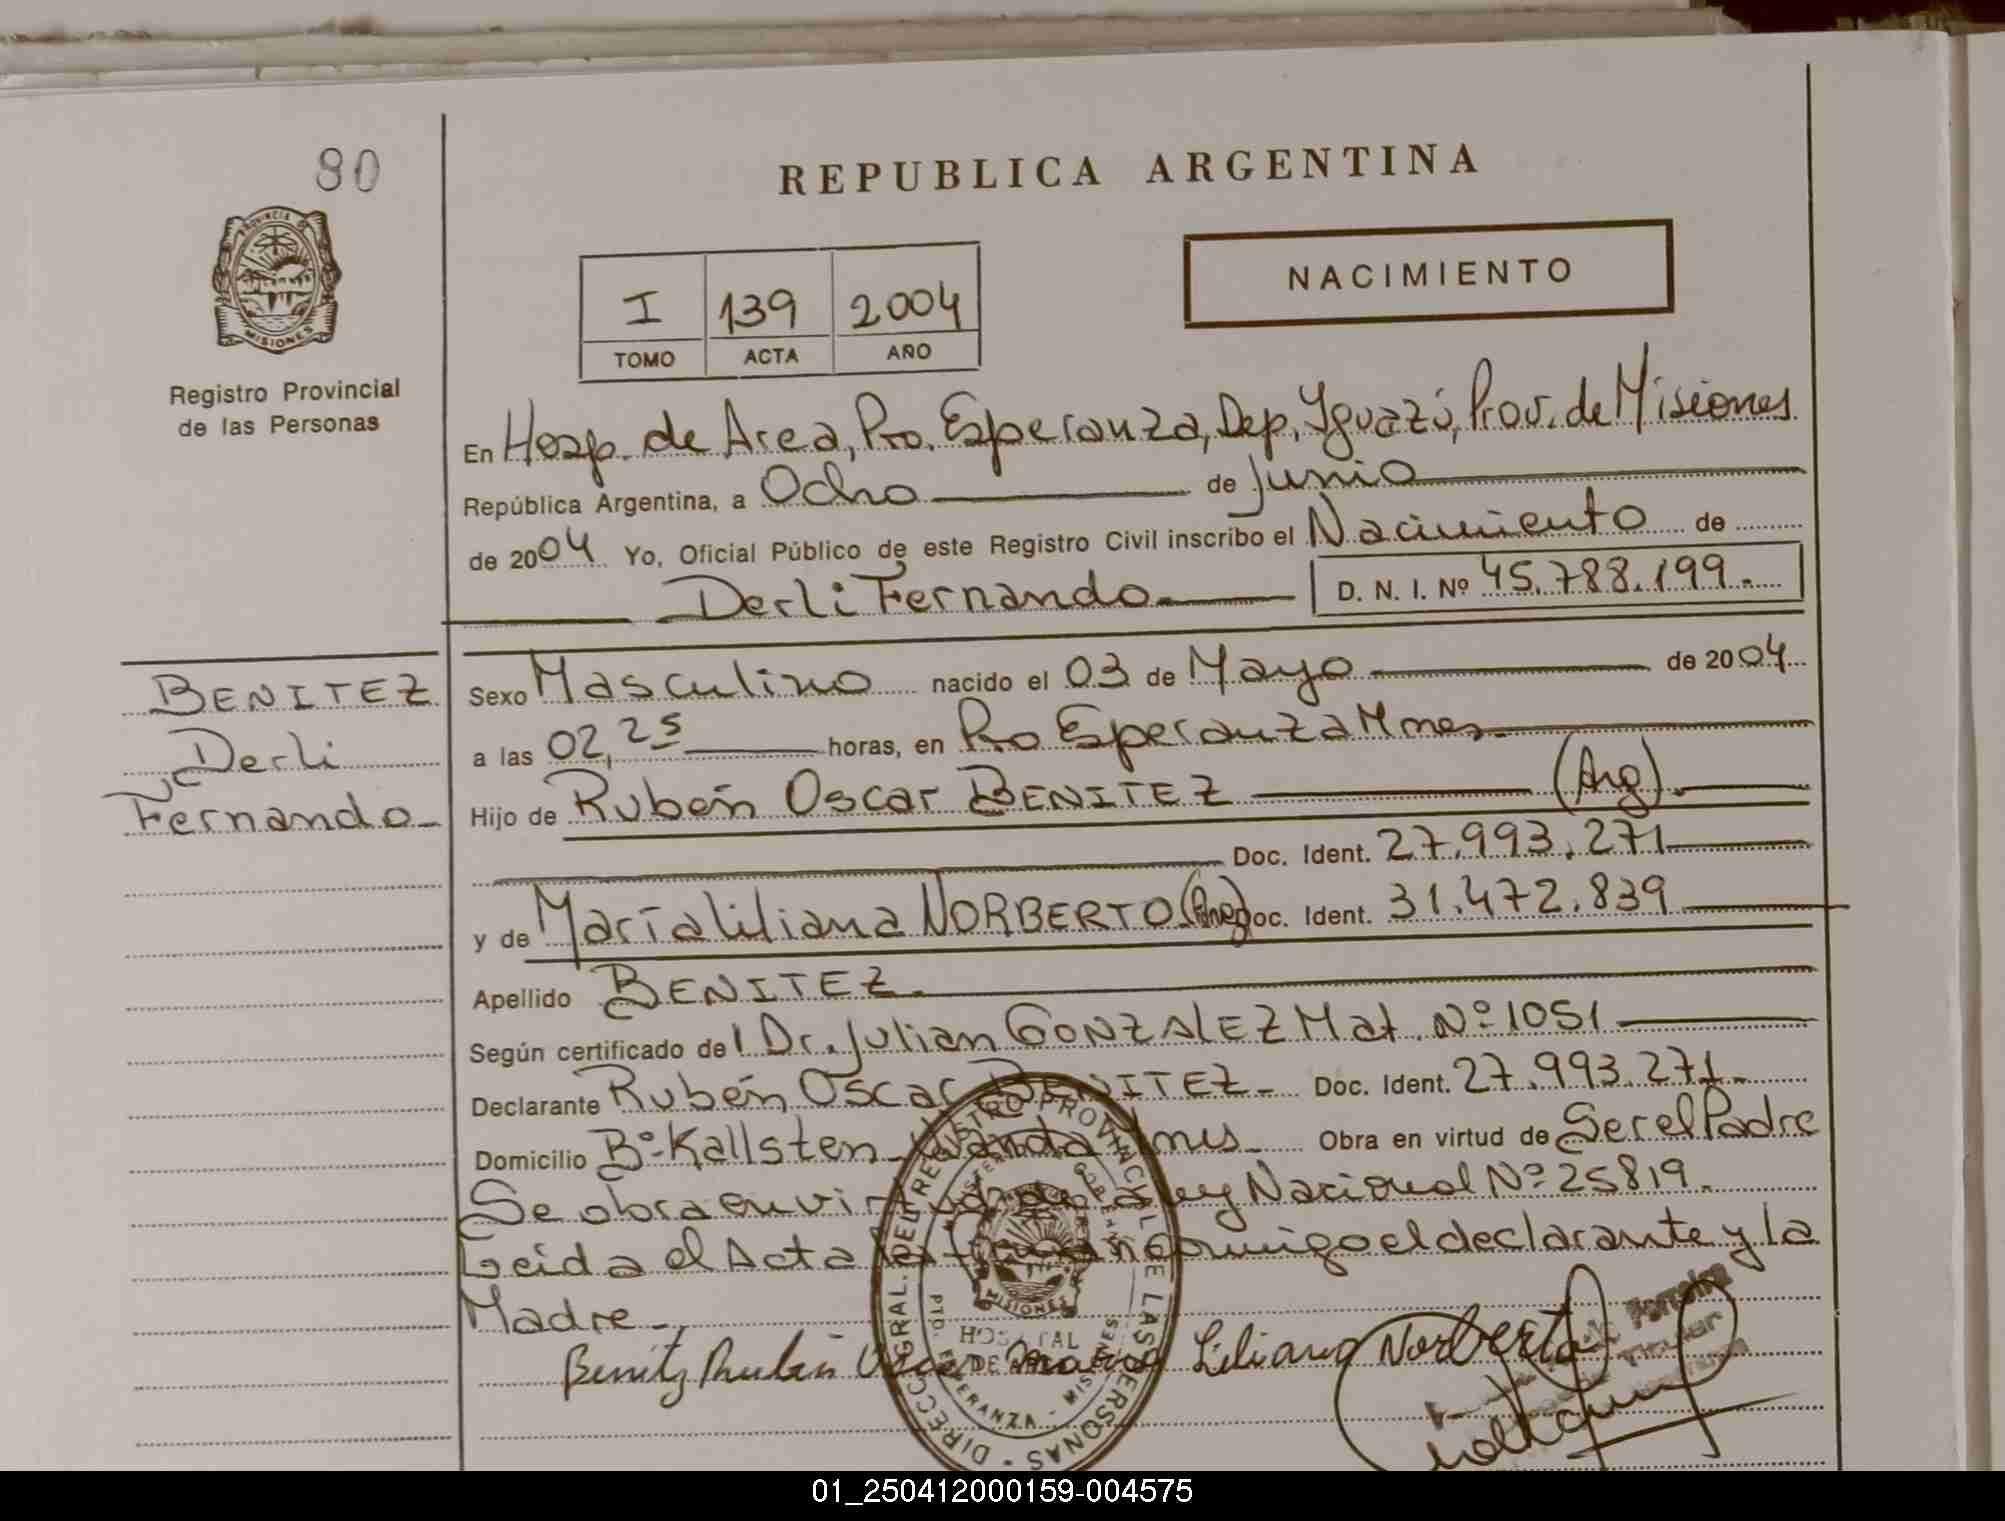 80
REPUBLICA ARGENTINA
PROVINCIA DE
MISIONES
Registro Provincial
de las Personas
NACIMIENTO
I 139 2004
TOMO ACTA AÑO
En Hosp. de Area, Pto. Esperanza, Dep. Iguazú, Prov. de Misiones
República Argentina, a Ocho de Junio
de 2004 Yo, Oficial Público de este Registro Civil inscribo el Nacimiento de
Derli Fernando D. N. I. Nº 45.788.199.
BENITEZ
Derli
Fernando
Sexo Masculino nacido el 03 de Mayo de 2004
a las 02,25 horas, en Pto Esperanza Mnes.
Hijo de Rubén Oscar BENITEZ (Arg).
Doc. Ident. 27.993.271
y de María Liliana NORBERTO (Arg) Doc. Ident. 31.472.839
Apellido BENITEZ.
Según certificado del Dr. Julian GONZALEZ Mat. Nº 1051
Declarante Rubén Oscar BENITEZ Doc. Ident. 27.993.271.
Domicilio Bº Kallsten Wanda Mnes Obra en virtud de Ser el Padre
Se obra en virtud de la Ley Nacional Nº 25819.
Leida el Acta la firman conmigo el declarante y la
Madre
Benitez Ruben Oscar Maria Liliana Norberto
DIRECC. GRAL. DEL REGISTRO PROVINCIAL DE LAS PERSONAS
MISIONES
HOSPITAL
DE
PTO. ESPERANZA - MISIONES
Titular
01_250412000159-004575